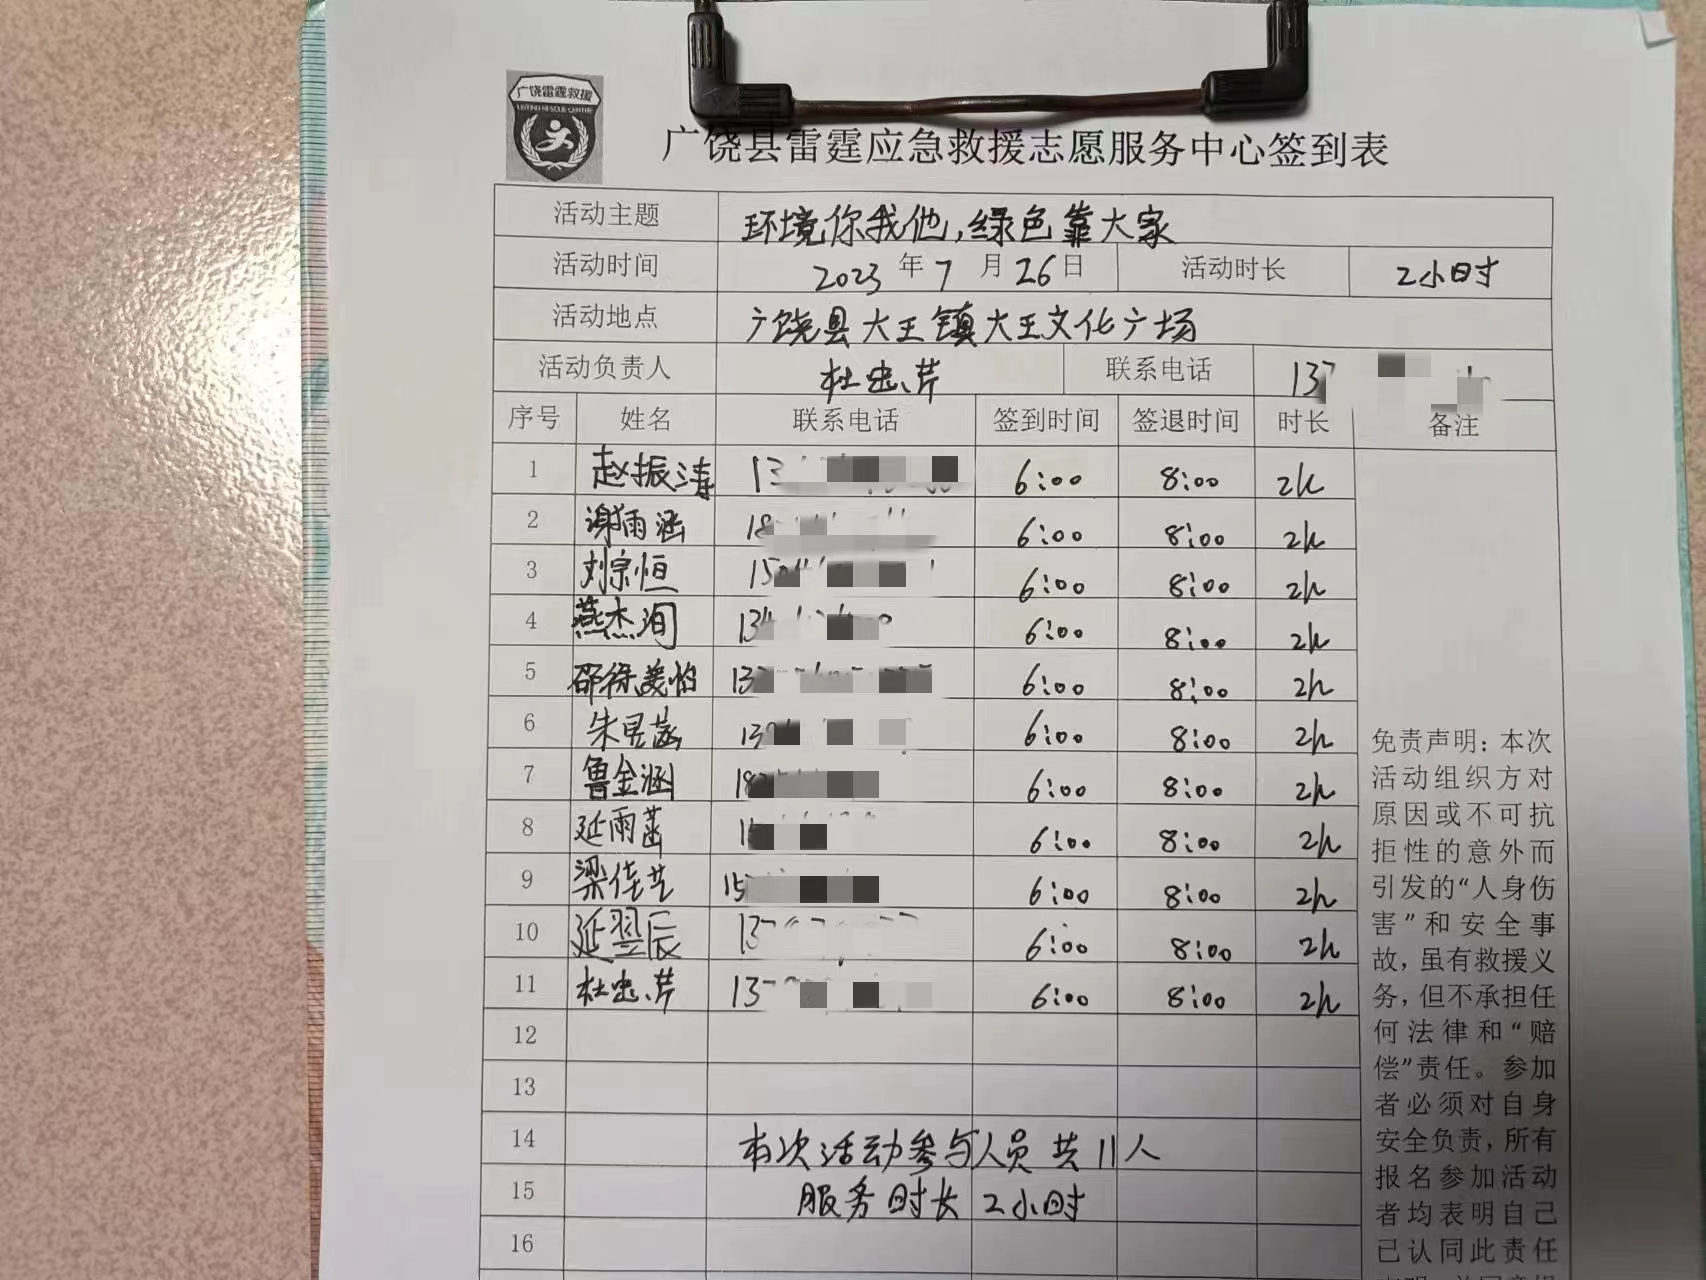 广饶雷霆救援
LEITING RESCUE CENTRE
广饶县雷霆应急救援志愿服务中心签到表
活动主题 环境你我他,绿色靠大家
活动时间 2023年7月26日 活动时长 2小时
活动地点 广饶县大王镇大王文化广场
活动负责人 杜忠芹 联系电话 137
序号 姓名 联系电话 签到时间 签退时间 时长 备注
1 赵振涛 13 6:00 8:00 2h
2 谢雨涵 18 6:00 8:00 2h
3 刘宗恒 150 6:00 8:00 2h
4 燕杰洵 134 6:00 8:00 2h
5 邵徐美怡 13 6:00 8:00 2h
6 朱昱菡 13 6:00 8:00 2h
7 鲁金涵 18 6:00 8:00 2h
8 延雨菡 1 6:00 8:00 2h
9 梁佳艺 15 6:00 8:00 2h
10 延翌辰 13 6:00 8:00 2h
11 杜忠芹 13 6:00 8:00 2h
12
13
14 本次活动参与人员共11人
15 服务时长2小时
16
免责声明:本次
活动组织方对
原因或不可抗
拒性的意外而
引发的“人身伤
害”和安全事
故,虽有救援义
务,但不承担任
何法律和“赔
偿”责任。参加
者必须对自身
安全负责,所有
报名参加活动
者均表明自己
已认同此责任